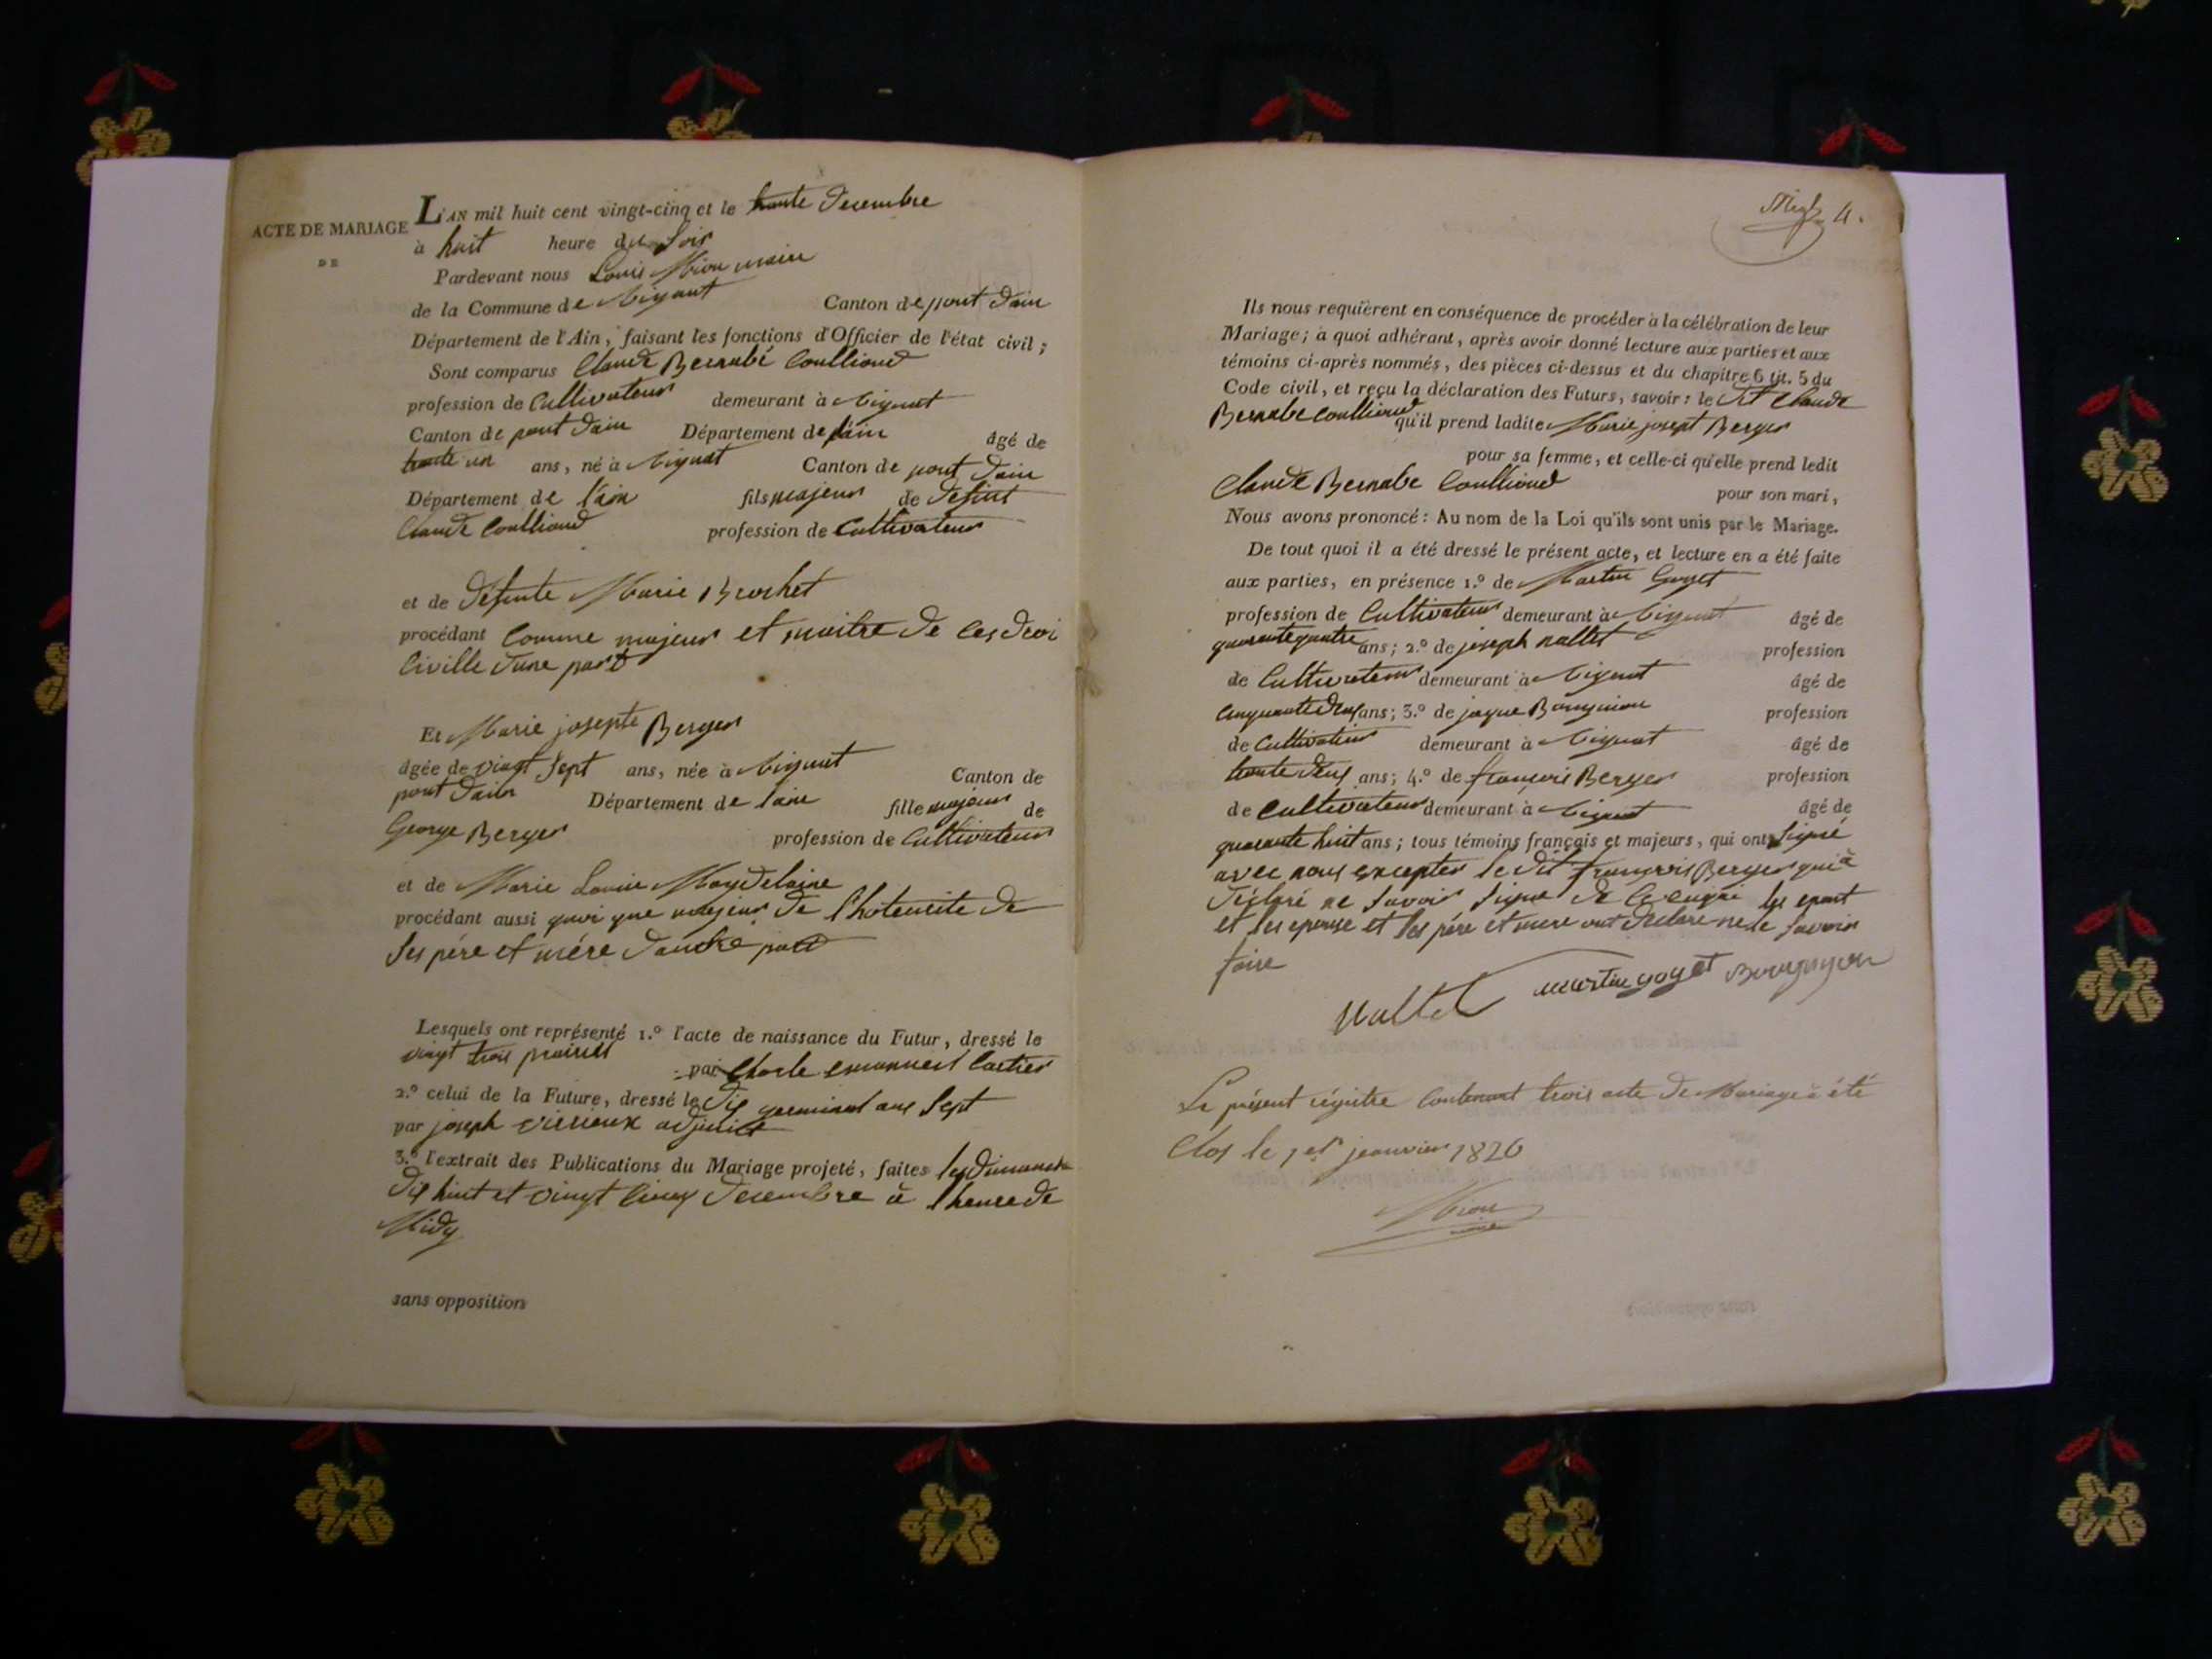 ACTE DE MARIAGE
DE
L'AN mil huit cent vingt-cinq et le trante decembre
à huit heure du soir
Pardevant nous Louis Mion maire
de la Commune de Canton de pont dain
Département de l'Ain, faisant les fonctions d'Officier de l'état civil;
Sont comparus Claude Bernabé Coullioud
profession de Cultivateur demeurant à
Canton de pont dain Département de lain âgé de
trante un ans, né à Canton de pont dain
Département de lain fils majeur de defunt
Claude Coullioud profession de Cultivateur
et de defunte Marie Brochet
procédant comme majeur et maitre de ces droi
Civille dune part
Et Marie josepte Berger
âgée de vingt sept ans, née à Canton de
pont dain Département de lain fille majeur de
George Berger profession de Cultivateur
et de Marie Louise Magdelaine
procédant aussi quoi que majeur de lhoteurite de
ses père et mére dautre part
Lesquels ont représenté 1.º l'acte de naissance du Futur, dressé le
vingt trois prairial par Charle emanuel Cartier
2.º celui de la Future, dressé le dix germinal ans sept
par joseph adjoint
3.º l'extrait des Publications du Mariage projeté, faites les dimanche
dix huit et vingt cinq decembre à lheure de
Midy
sans opposition
4.
Ils nous requièrent en conséquence de procéder à la célébration de leur
Mariage; à quoi adhérant, après avoir donné lecture aux parties et aux
témoins ci-après nommés, des pièces ci-dessus et du chapitre 6 tit. 5 du
Code civil, et reçu la déclaration des Futurs, savoir: le dit Claude
Bernabe Coullioud qu'il prend ladite Marie josept Berger
pour sa femme, et celle-ci qu'elle prend ledit
Claude Bernabe Coullioud pour son mari,
Nous avons prononcé: Au nom de la Loi qu'ils sont unis par le Mariage.
De tout quoi il a été dressé le présent acte, et lecture en a été faite
aux parties, en présence 1.º de Martin Goyet
profession de Cultivateur demeurant à âgé de
quarante quatre ans; 2.º de joseph nallet profession
de Cultivateur demeurant à âgé de
Cinquante deux ans; 3.º de jaque profession
de Cultivateur demeurant à âgé de
trante deux ans; 4.º de françois Berger profession
de Cultivateur demeurant à âgé de
quarante huit ans; tous témoins français et majeurs, qui ont signé
avec nous excepter le dit françois Berger qui à
déclaré ne savoir signe de ce enquri les epout
et les epouse et les père et mere ont declare ne le savoir
faire
Nallet martin goyet Bourguignon
Le présent régistre Contenant trois acte de Mariage à été
Clos le 1er jeanvier 1826
Mion
maire